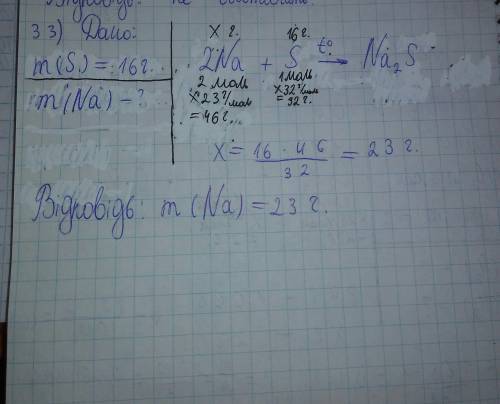 33) Дано:
m(S) = 16г.
m(Na) - ?
x г. 16г.
2Na + S t° → Na₂S
2 моль 1 моль
×23 г/моль ×32 г/моль
= 46г. = 32г.
X = 16 · 46 / 32 = 23 г.
Відповідь: m (Na) = 23 г.